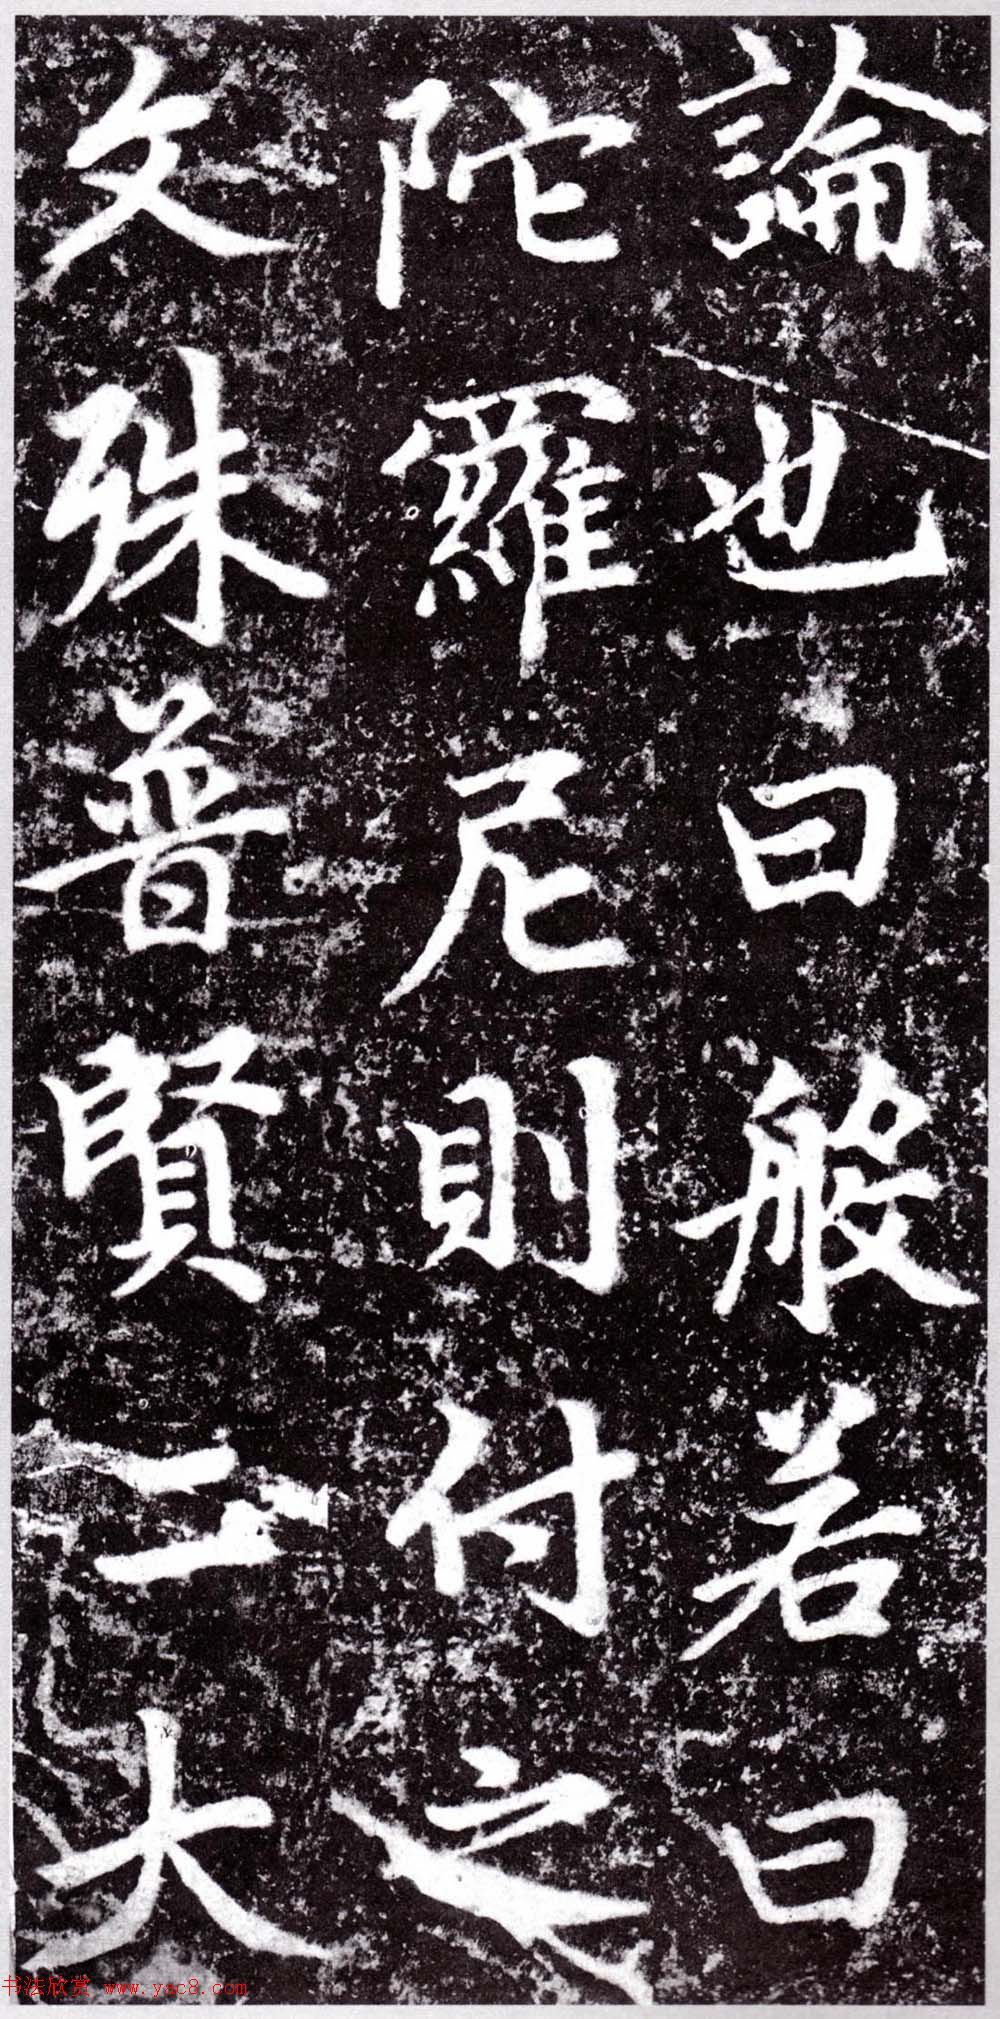 論也曰般若曰
陀羅尼則付之
文殊普賢二大
书法欣赏 www.yac8.com